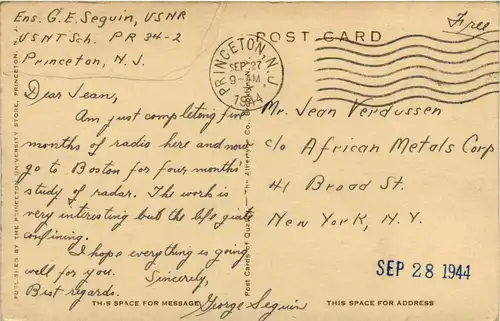 Ens. G. E. Seguin, USNR
USNTSch. PR 34-2
Princeton, N. J.
Dear Jean,
Am just completing five
months of radio here and now
go to Boston for four months'
study of radar. The work is
very interesting but the life quite
confining.
I hope everything is going
well for you. Sincerely,
Best regards. George Seguin
THIS SPACE FOR MESSAGE
POST CARD
Free
PRINCETON, N.J.
SEP 27
9-AM
1944
Mr. Jean Verdussen
c/o African Metals Corp
41 Broad St.
New York, N. Y.
SEP 28 1944
THIS SPACE FOR ADDRESS
PUBLISHED BY THE PRINCETON UNIVERSITY STORE, PRINCETON, N. J.
Post Cards of Quality. — The Albertype Co., Brooklyn, N. Y.